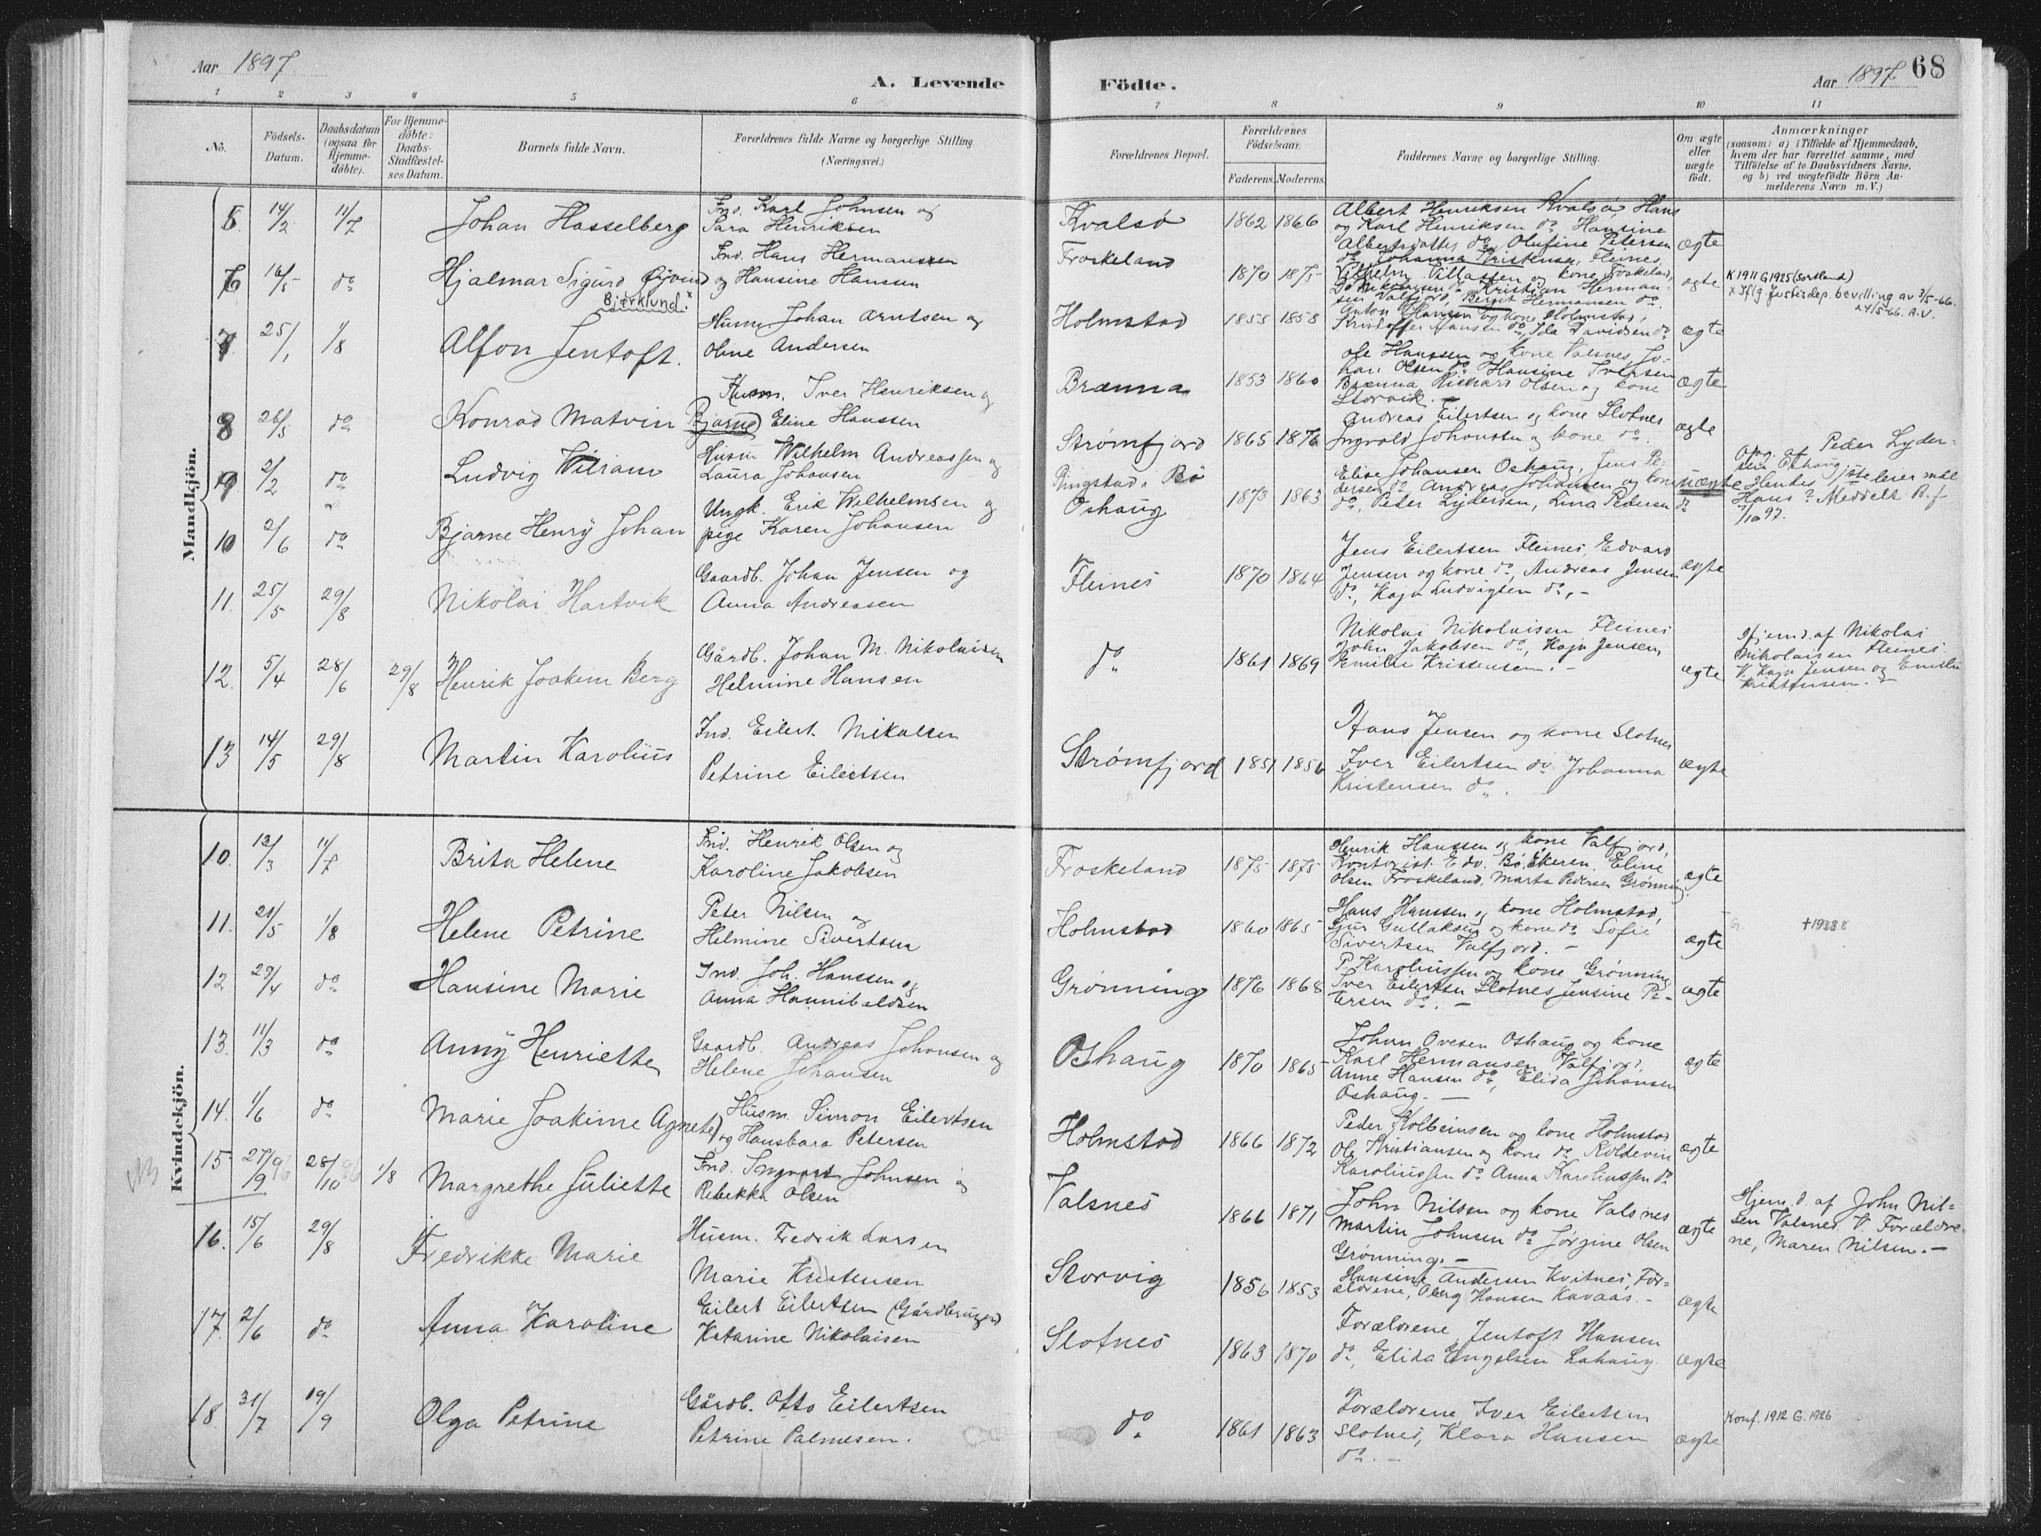 Aar 1897
A. Levende
Födte.
Aar 1897. 68
1 2 3 4 5 6 7 8 9 10 11
No.
Födsels-Datum.
Daabsdatum (ogsaa for Hjemmedöbte).
For Hjemmedöbte: Daabs-Stadfæstelses Datum.
Barnets fulde Navn.
Forældrenes fulde Navne og borgerlige Stilling (Næringsvei.)
Forældrenes Bopæl.
Forældrenes Födselsaar.
Faderens Moderens
Faddernes Navne og borgerlige Stilling.
Om ægte eller uægte födt.
Anmærkninger
(saasom: a) i Tilfælde af Hjemmedaab, hvem der har forrettet samme, med Tilföielse af to Daabsvidners Navne, og b) ved uægtefödte Börn Anmelderens Navn m. V.)
Mandkjön.
5. 14/2 11/7 Johan Hasselberg
Ind. Karl Johnsen og
Sara Henriksen
Kvalsø 1862 1866
Albert Henriksen Kvalsø, Hans
og Karl Henriksen do Hansine
Albertsdatter do Olufine Petersen
do Johanna Kristensen, Fleines,
ægte
6 16/5 do Hjalmar Sigurd Øyvind
Bjørklund x
Ind. Hans Hermansen
og Hansine Hansen
Froskeland 1870 1875
Vilhelm Villassen og kone Froskeland,
Kristian Hermansen Valfjord, Bergit Hermansen do.
ægte
K 1911 G 1925 (Sortland)
x Iflg Justisdep. bevilling av 3/5-66.
24/5-66. A.V.
7 25/1 1/8 Alfon Jentoft.
Husm. Johan Arntsen og
Oline Andersen
Holmstad 1855 1858
Anton Hansen og kone Holmstad,
Kristoffer Hansen do, Ida Davidsen do
ægte
8 26/3 do Konrad Matvin Bjarne)
Husm. Iver Henriksen og
Eline Hanssen
Brænna 1853 1860
Ole Hanssen og kone Valsnes, Jo-
han Olsen do Hansine Iversen
Brænna Rickard Olsen og kone
Storvik. —
ægte
9 2/2 do Ludvig Viliam
Husm Wilhelm Andreassen og
Laura Johansen
Strømfjord 1865 1876
Andreas Eilertsen og kone Slotnes
Ingvald Johansen og kone do.
ægte
10 2/6 do Bjarne Henry Johan
Ungk. Erik Wilhelmsen og
pige Karen Johansen
Ringstad i Bø
Oshaug 1873 1863
Elise Johansen Oshaug, Jens Pe-
dersen do Andreas Johansen og kone
do, Peder Lydersen, Lina Pedersen do
uægte
Opg. af Peder Lyder-
sen Oshaug
Hans? Meddelt B.f
1/10 97.
11. 25/5 29/8 Nikolai Hartvik
Gaardb. Johan Jensen og
Anna Andreasen
Fleines 1870 1864
Jens Eilertsen Fleines, Edvard
Jensen og kone do, Andreas Jensen
do, Kaja Ludvigsen do, —
ægte
12. 5/4 28/6 29/8 Henrik Joakim Berg
Gårdb. Johan M. Nikolaisen
Helmine Hansen
do 1861 1869
Nikolai Nikolaisen Fleines
John Jakobsen do, Kaja Jensen,
Emilie Kristensen. —
ægte
Hjemd. af Nikolai
Nikolaisen Fleines
V. Kaja Jensen og Emilie
Kristensen. —
13 14/5 29/8 Martin Karolius
Ind. Eilert Nikolsen
Petrine Eilertsen
Strømfjord 1851 1856
Hans Jensen og kone Slotnes
Iver Eilertsen do Johanna
Kristensen do.
ægte
Kvindekjön.
10. 13/3 11/7 Brita Helene
Ind. Henrik Olsen og
Karoline Jakobsen
Froskeland 1875 1875
Henrik Hanssen og kone Valfjord,
Kontorist Edv. Bø, Ekeren, Eline
Olsen Froskeland, Marta Pedersen Grønning.
ægte
11. 21/5 1/8 Helene Petrine
Peter Nilsen og
Helmine Sivertsen
Holmstad 1860 1865
Hans Hanssen og kone Holmstad,
Gullaksen og kone do Sofie
Sivertsen Valfjord. —
ægte
G. † 1938 8
12. 29/4 do Hansine Marie
Ind. Joh. Hanssen og
Anna Hannibaldsen
Grønning 1876 1868
P. Karoliussen og kone Grønning
Iver Eilertsen Slotnes, Jensine Pe-
tersen do. —
ægte
13. 11/3 do Anny Henriette
Gaardb. Andreas Johansen og
Helene Johansen
Oshaug 1870 1865
Johan Ovesen Oshaug og kone
Karl Hermansen Valfjord,
Anne Hansen do, Elida Johansen
Oshaug. —
ægte
14. 1/6 do Marie Joakime Agnete)
Husm. Simon Eilertsen
og Hansbara Petersen
Holmstad 1866 1872
Peder Kolbeinsen og kone Holmstad
Ole Kristiansen og kone do Roldevin
Karoliussen do Anna Karoliussen do
ægte
15 27/9 96 28/10 96 1/8 Margrethe Juliette
Ind. Ingvart Johnsen og
Rebekka Olsen
Valsnes 1866 1871
John Nilsen og kone Valsnes
Martin Johnsen do Jørgine Olsen
Grønning. —
ægte
Hjem. d. af John Nil-
sen Valsnes V. Forældre-
ne, Maren Nilsen. —
16. 15/6 29/8 Fredrikke Marie
Husm. Fredrik Larsen
Marie Kristensen
Storvig 1856 1853
Hansine Andersen Kvitnes, For-
ældrene, Oberg Hansen Kavaas. —
ægte
17. 2/6 do Anna Karoline
Eilert Eilertsen (Gårdbruger)
Katarine Nikolaisen
Slotnes 1863 1870
Forældrene, Jentoft Hansen
do, Elida Engelsen Lahaug.
ægte
18. 31/7 19/9 Olga Petrine
Gårdb. Otto Eilertsen
Petrine Palmesen.
do 1861 1863
Forældrene, Iver Eilertsen
Slotnes, Klara Hansen
do. —
ægte
Konf. 1912 G. 1926